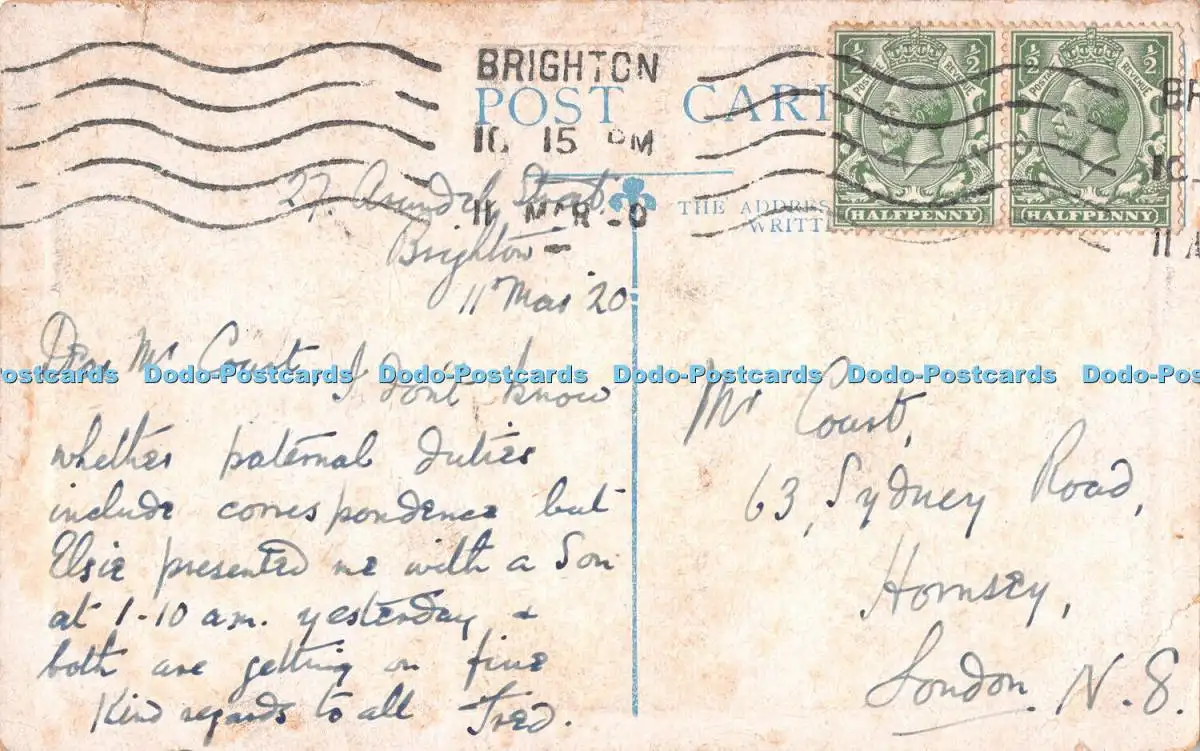 BRIGHTON
10 15 PM
11 MAR 20
POST CAR
THE ADDRES
WRITT
½ ½
POSTAGE REVENUE
HALFPENNY
½ ½
POSTAGE REVENUE
HALFPENNY
BR
10
11
27, Arundel Street,
Brighton
11 Mar 20
Dear Mr Court,
I dont know
whether paternal duties
include correspondence but
Elsie presented me with a Son
at 1-10 am. yesterday &
both are getting on fine
Kind regards to all Fred.
Mr Court,
63, Sydney Road,
Hornsey,
London. N. 8.
ostcards Dodo-Postcards Dodo-Postcards Dodo-Postcards Dodo-Postcards Dodo-Post